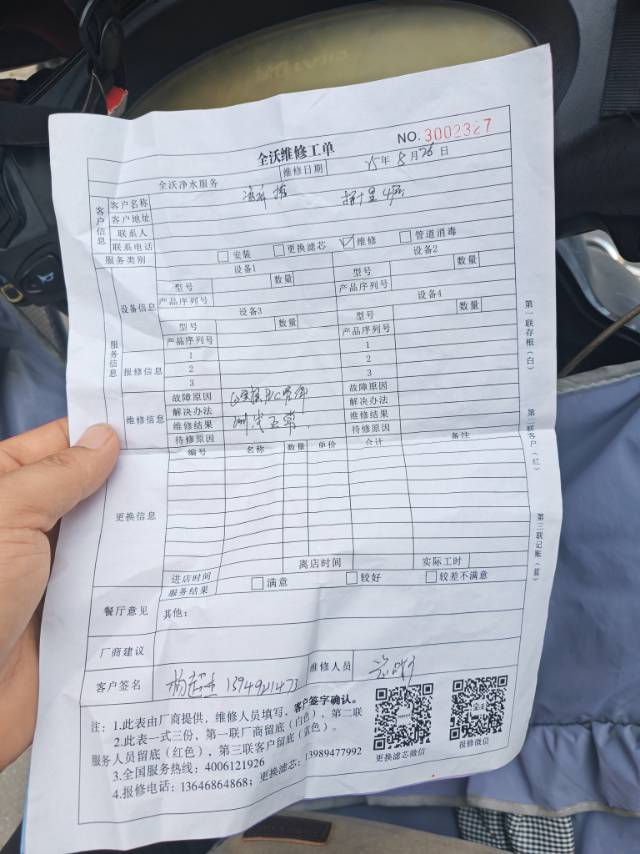 全沃维修工单
NO. 3002327
全沃净水服务 维修日期 25年8月26日
客户信息
客户名称
客户地址
联系人
联系电话
服务类别 安装 更换滤芯 维修 管道消毒
服务信息
设备信息
设备1 设备2
型号 数量 型号 数量
产品序列号 产品序列号
设备3 设备4
型号 数量 型号 数量
产品序列号 产品序列号
报修信息
1 1
2 2
3 3
维修信息
故障原因 故障原因
解决办法 解决办法
维修结果 正常 维修结果
待修原因 待修原因
更换信息
编号 名称 数量 单价 合计 备注
进店时间 离店时间 实际工时
服务结果 满意 较好 较差不满意
餐厅意见 其他:
厂商建议
客户签名 1594921473 维修人员
注: 1.此表由厂商提供,维修人员填写,客户签字确认。
2.此表一式三份,第一联厂商留底(白色),第二联
服务人员留底(红色),第三联客户留底(蓝色)。
3.全国服务热线: 4006121926
4.报修电话: 13646864868; 更换滤芯: 13989477992
更换滤芯微信
报修微信
第一联存根(白)
第二联客户(红)
第三联记账(蓝)